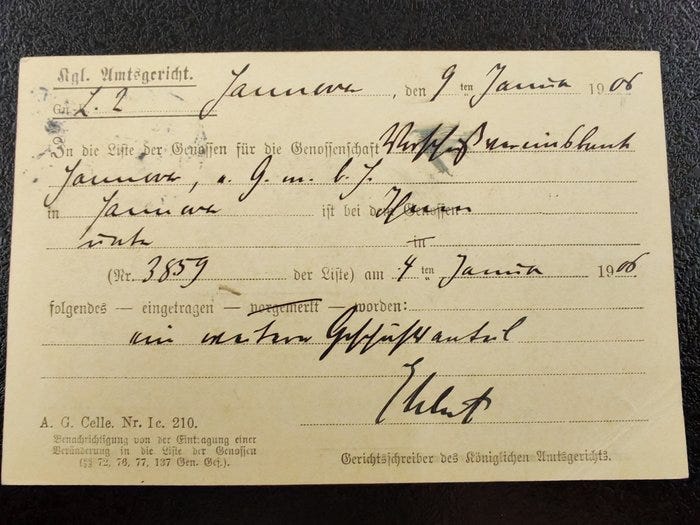 Kgl. Amtsgericht.
Gn.-R. L. 2 Hannover, den 9 ten Januar 1906
In die Liste der Genossen für die Genossenschaft Vorschußvereinsbank
Hannover, e. G. m. b. H.
in Hannover ist bei dem Genossen Ihnen
unter in
(Nr. 3859 der Liste) am 4 ten Januar 1906
folgendes — eingetragen — vorgemerkt — worden:
ein weiterer Geschäftsanteil
A. G. Celle. Nr. Ic. 210.
Benachrichtigung von der Eintragung einer
Veränderung in die Liste der Genossen
(§§ 72, 76, 77, 137 Gen. Ges.).
Gerichtsschreiber des Königlichen Amtsgerichts.